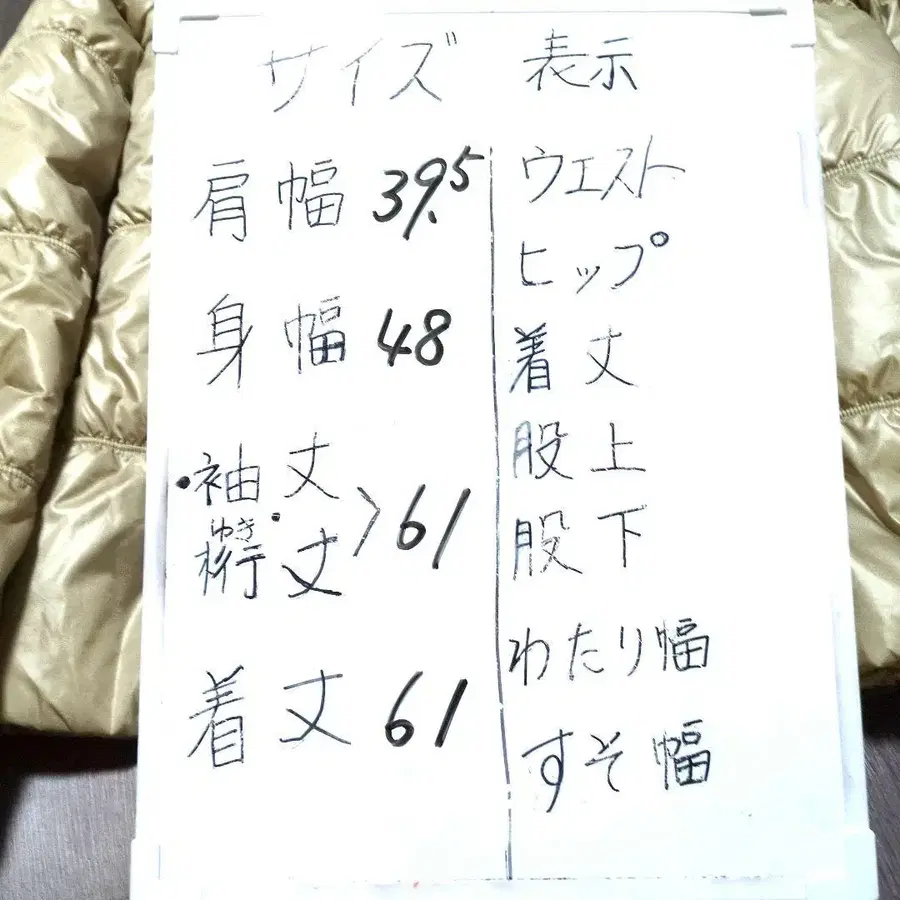 サイズ 表示
肩幅 39.5
身幅 48
・袖丈
ゆき・
裄丈 > 61
着丈 61
ウエスト
ヒップ
着丈
股上
股下
わたり幅
すそ幅